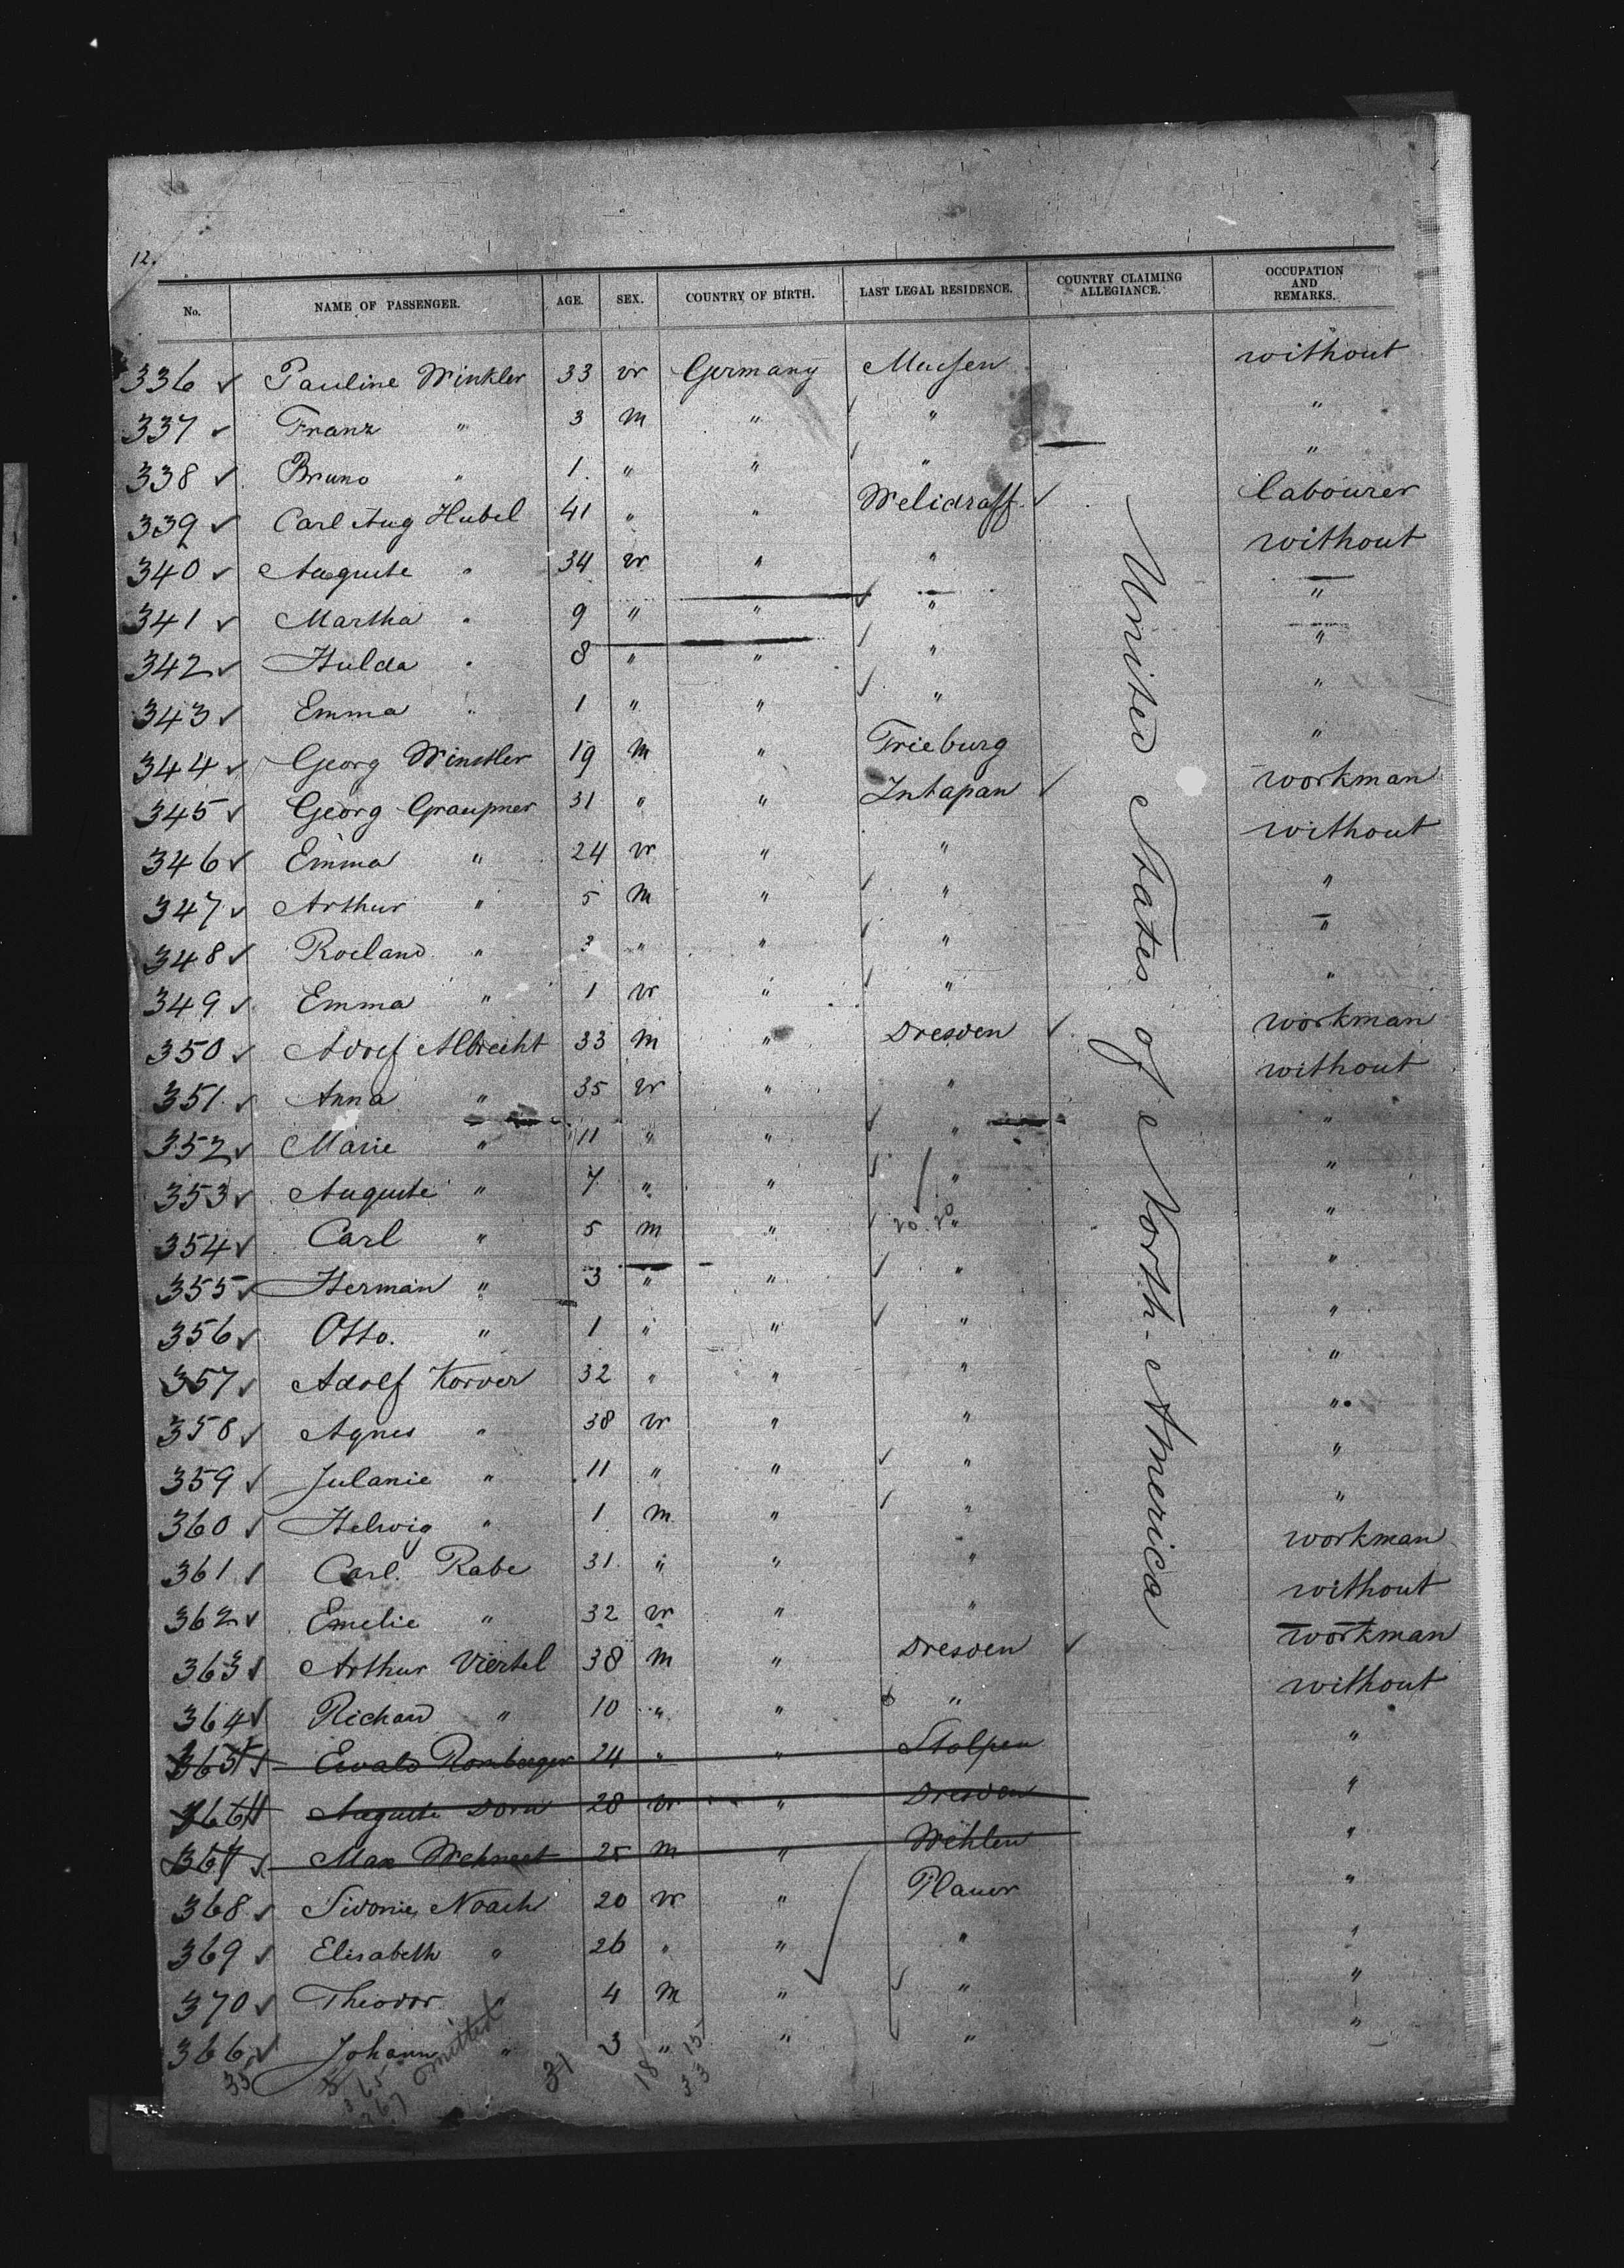 12.
No. NAME OF PASSENGER. AGE. SEX. COUNTRY OF BIRTH. LAST LEGAL RESIDENCE. COUNTRY CLAIMING ALLEGIANCE. OCCUPATION AND REMARKS.
336 ✓ Pauline Winkler 33 w Germany without
337 ✓ Franz " 3 m " ✓ " "
338 ✓ Bruno " 1 " " ✓ " "
339 ✓ Carl Aug Hubel 41 " " ✓ labourer
340 ✓ Auguste " 34 w " " without
341 ✓ Martha " 9 " " ✓ " "
342 ✓ Hulda " 8 " " ✓ " "
343 ✓ Emma " 1 " " ✓ " "
344 ✓ Georg 19 m " Frieburg "
345 ✓ Georg Graupner 31 " " Intapan ✓ workman
346 ✓ Emma " 24 w " " without
347 ✓ Arthur " 5 m " ✓ " "
348 ✓ Roeland " 3 " " ✓ " "
349 ✓ Emma " 1 w " ✓ " "
350 ✓ Adolf Albrecht 33 m " Dresden ✓ workman
351 ✓ Anna " 35 w " " without
352 ✓ Marie " 11 " " ✓ " "
353 ✓ Auguste " 7 " " ✓ " "
354 ✓ Carl " 5 m " ✓ 20 20 " "
355 ✓ Herman " 3 " " ✓ " "
356 ✓ Otto. " 1 " " ✓ " "
357 ✓ Adolf Korver 32 " " " "
358 ✓ Agnes " 38 w " " "
359 ✓ Julanie " 11 " " ✓ " "
360 ✓ Helwig " 1 m " ✓ " "
361 ✓ Carl Rabe 31 " " " workman
362 ✓ Emelie " 32 w " " without
363 ✓ Arthur Viertel 38 m " Dresden ✓ workman
364 ✓ Richard " 10 " " " without
365 Ewald Romberger 24 " " Stolpen "
366 Auguste Dorn 28 w " Dresden "
367 Max Wehnert 25 m " Wehlen "
368 ✓ Sidonie Noack 20 w " Plauen "
369 ✓ Elisabeth " 26 " " " "
370 ✓ Theodor " 4 m " ✓ " "
366 ✓ Johann " 3 " " ✓ " "
United States of North-America
35 365 367 omitted 31 18 15 33